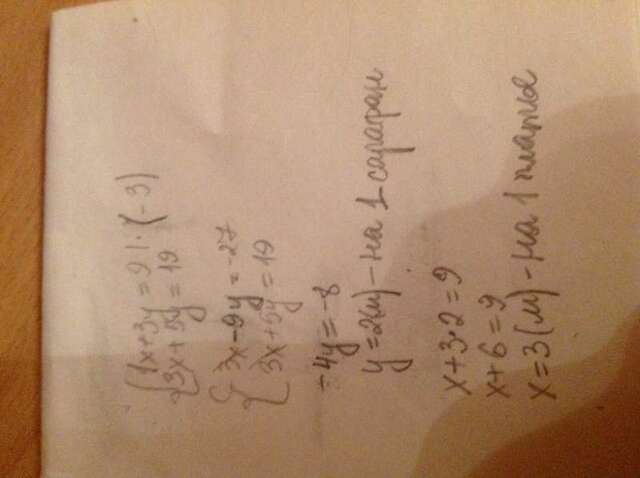 {1x+3y=9 | ·(-3)
{3x+5y=19
{-3x-9y=-27
{3x+5y=19
-4y=-8
y=2(м)-на 1 сарафан
x+3·2=9
x+6=9
x=3(м)-на 1 платье